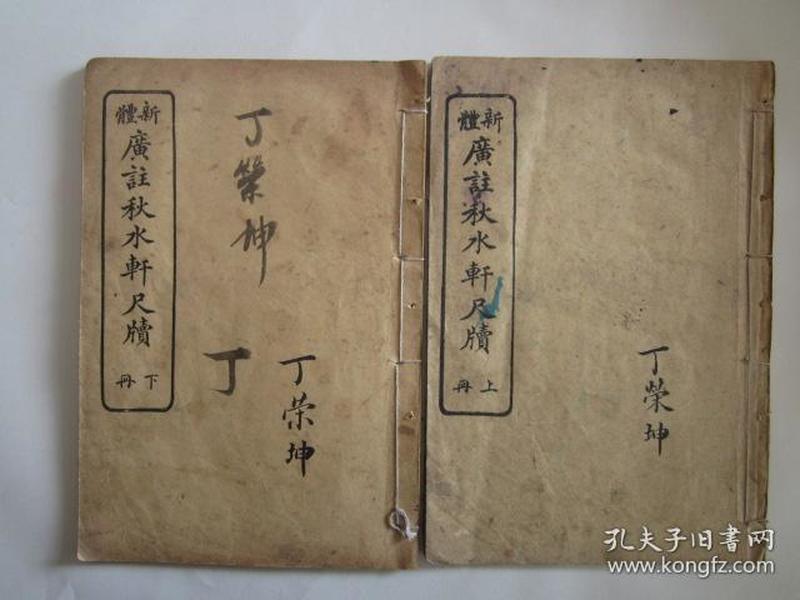 新體
廣註秋水軒尺牘
上冊
丁榮坤
新體
廣註秋水軒尺牘
下冊
丁榮坤
丁荣坤
丁
孔夫子旧書网
www.kongfz.com